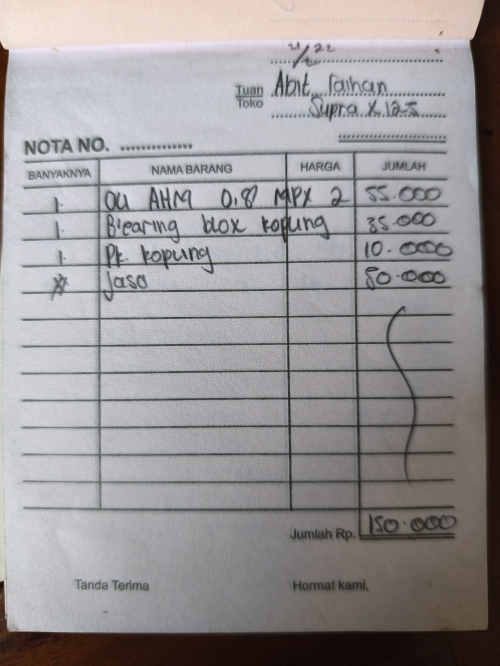 Tuan
Toko
Abit Raihan
Supra X 125
NOTA NO. ..............
BANYAKNYA NAMA BARANG HARGA JUMLAH
1. Oli AHM 0,8 MPX 2 55.000
1. Bearing blox kopung 35.000
1. Pk. kopung 10.000
Jasa 50.000
Jumlah Rp. 150.000
Tanda Terima Hormat kami,